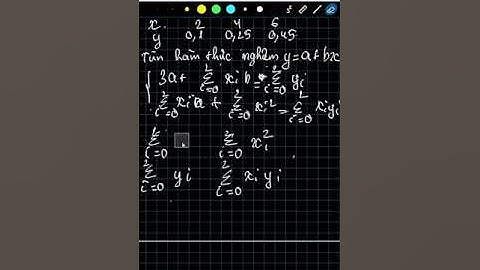 x. 2 4 6
y 0,1 0,25 0,45
Tìm hàm thực nghiệm y=a+bx
3a+ 2∑i=0 xi b = 2∑i=0 yi
2∑i=0 xi a + 2∑i=0 xi² = 2∑i=0 xi yi
2∑i=0 2∑i=0 xi²
2∑i=0 yi 2∑i=0 xi yi